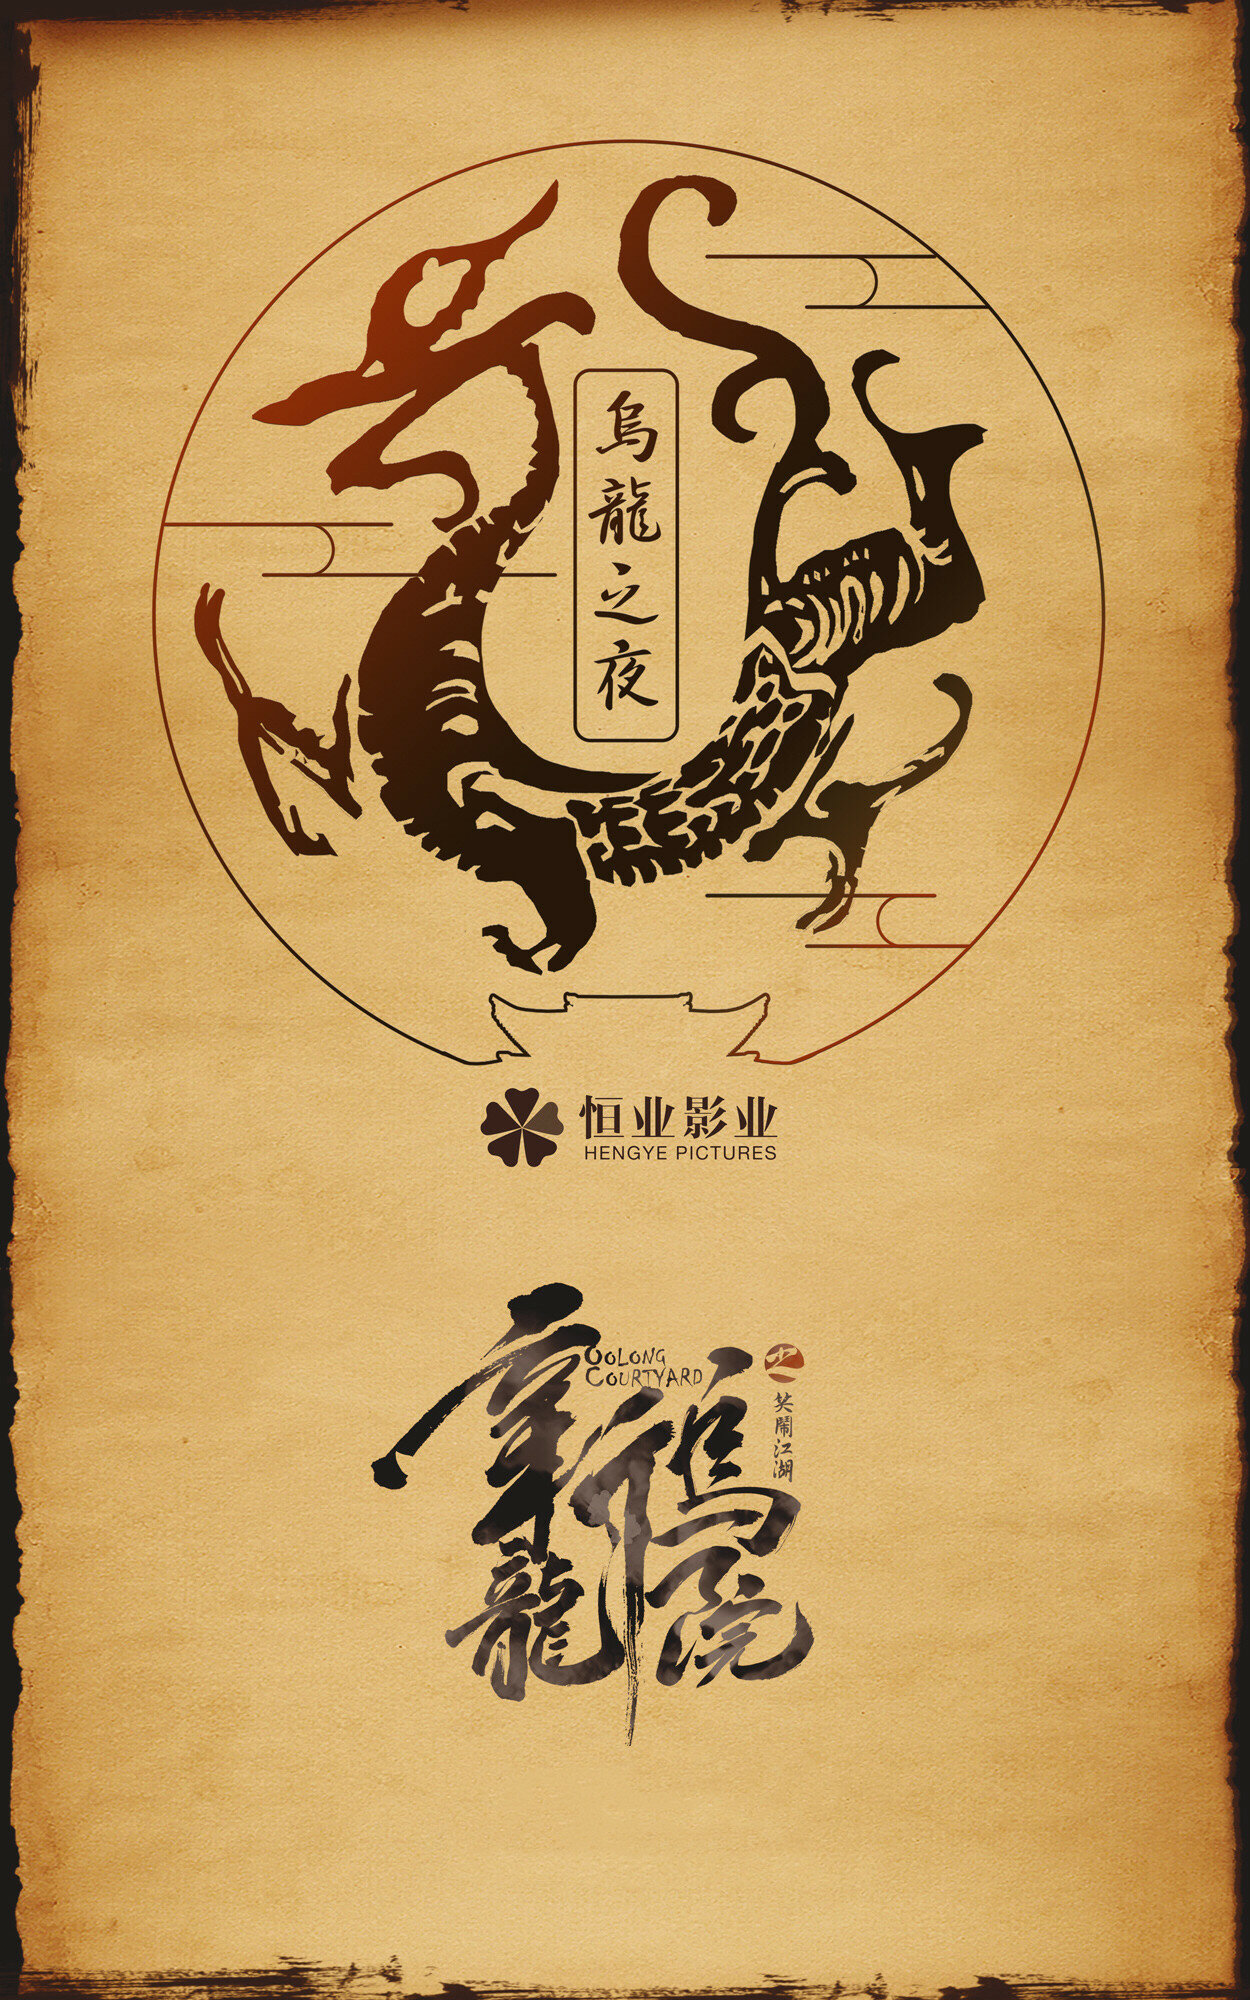 烏龍之夜
恒业影业
HENGYE PICTURES
新烏龍院
OOLONG
COURTYARD
之
笑鬧江湖